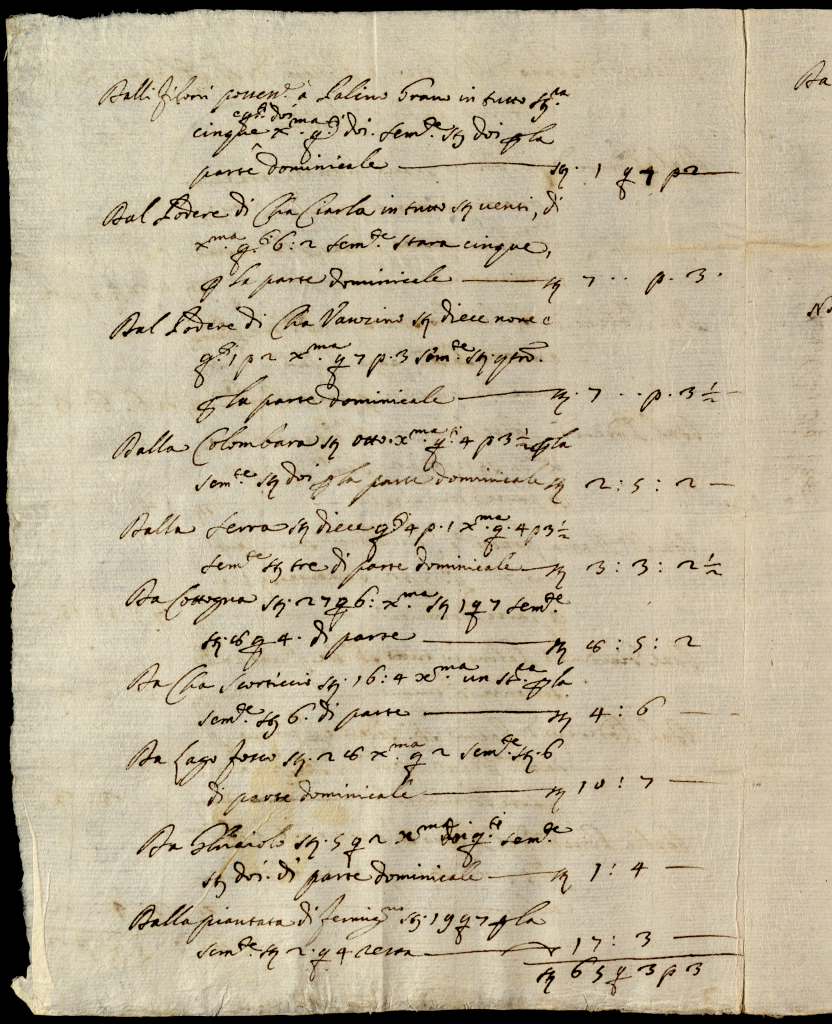 Dalli filoni poven.ti à Salino Grano in tutto st.ra
cinque x.ma q.ti doi. sem.te st doi p la
parte dominicale — st. 1 q 4 p 2 —
Dal Podere di Cha Ciarla in tutto st venti, di
x.ma q.ti 6:2 sem.te stara cinque,
p la parte dominicale — st 7 .. p. 3.
Dal Podere di Cha st diece nove e
q.ti 1 p 2 x.ma q 7 p. 3 sem.te st. qtro.
p la parte dominicale — st. 7 .. p. 3 ½ —
Dalla Colombara st otto. x.ma q.ti 4 p 3 ½ p la
sem.te st doi p la parte dominicale st 2 : 5 : 2 —
Dalla Serra st diece q.ti 4 p. 1 x.ma q. 4 p 3 ½
sem.te st tre di parte dominicale — st 3 : 3 : 2 ½
Da Cottogna st. 27 q 6 : x.ma st 1 q 7 sem.te
st. 8 q 4. di parte — st 8 : 5 : 2
Da Cha Scorticcio st. 16 : 4 x.ma un st.ra p la
sem.te st 6. di parte — st 4 : 6 —
Da Lago fosco st. 28 x.ma q 2 sem.te st. 6
di parte dominicale — st 10 : 7 —
Da st. 5 q 2 x.ma doi q.ti sem.te
st doi. di parte dominicale — st 1 : 4 —
Dalla piantata di st. 19 q 7 p la
sem.te st 2. q 4 resta — 17 : 3 —
st 65 q 3 p 3
Da